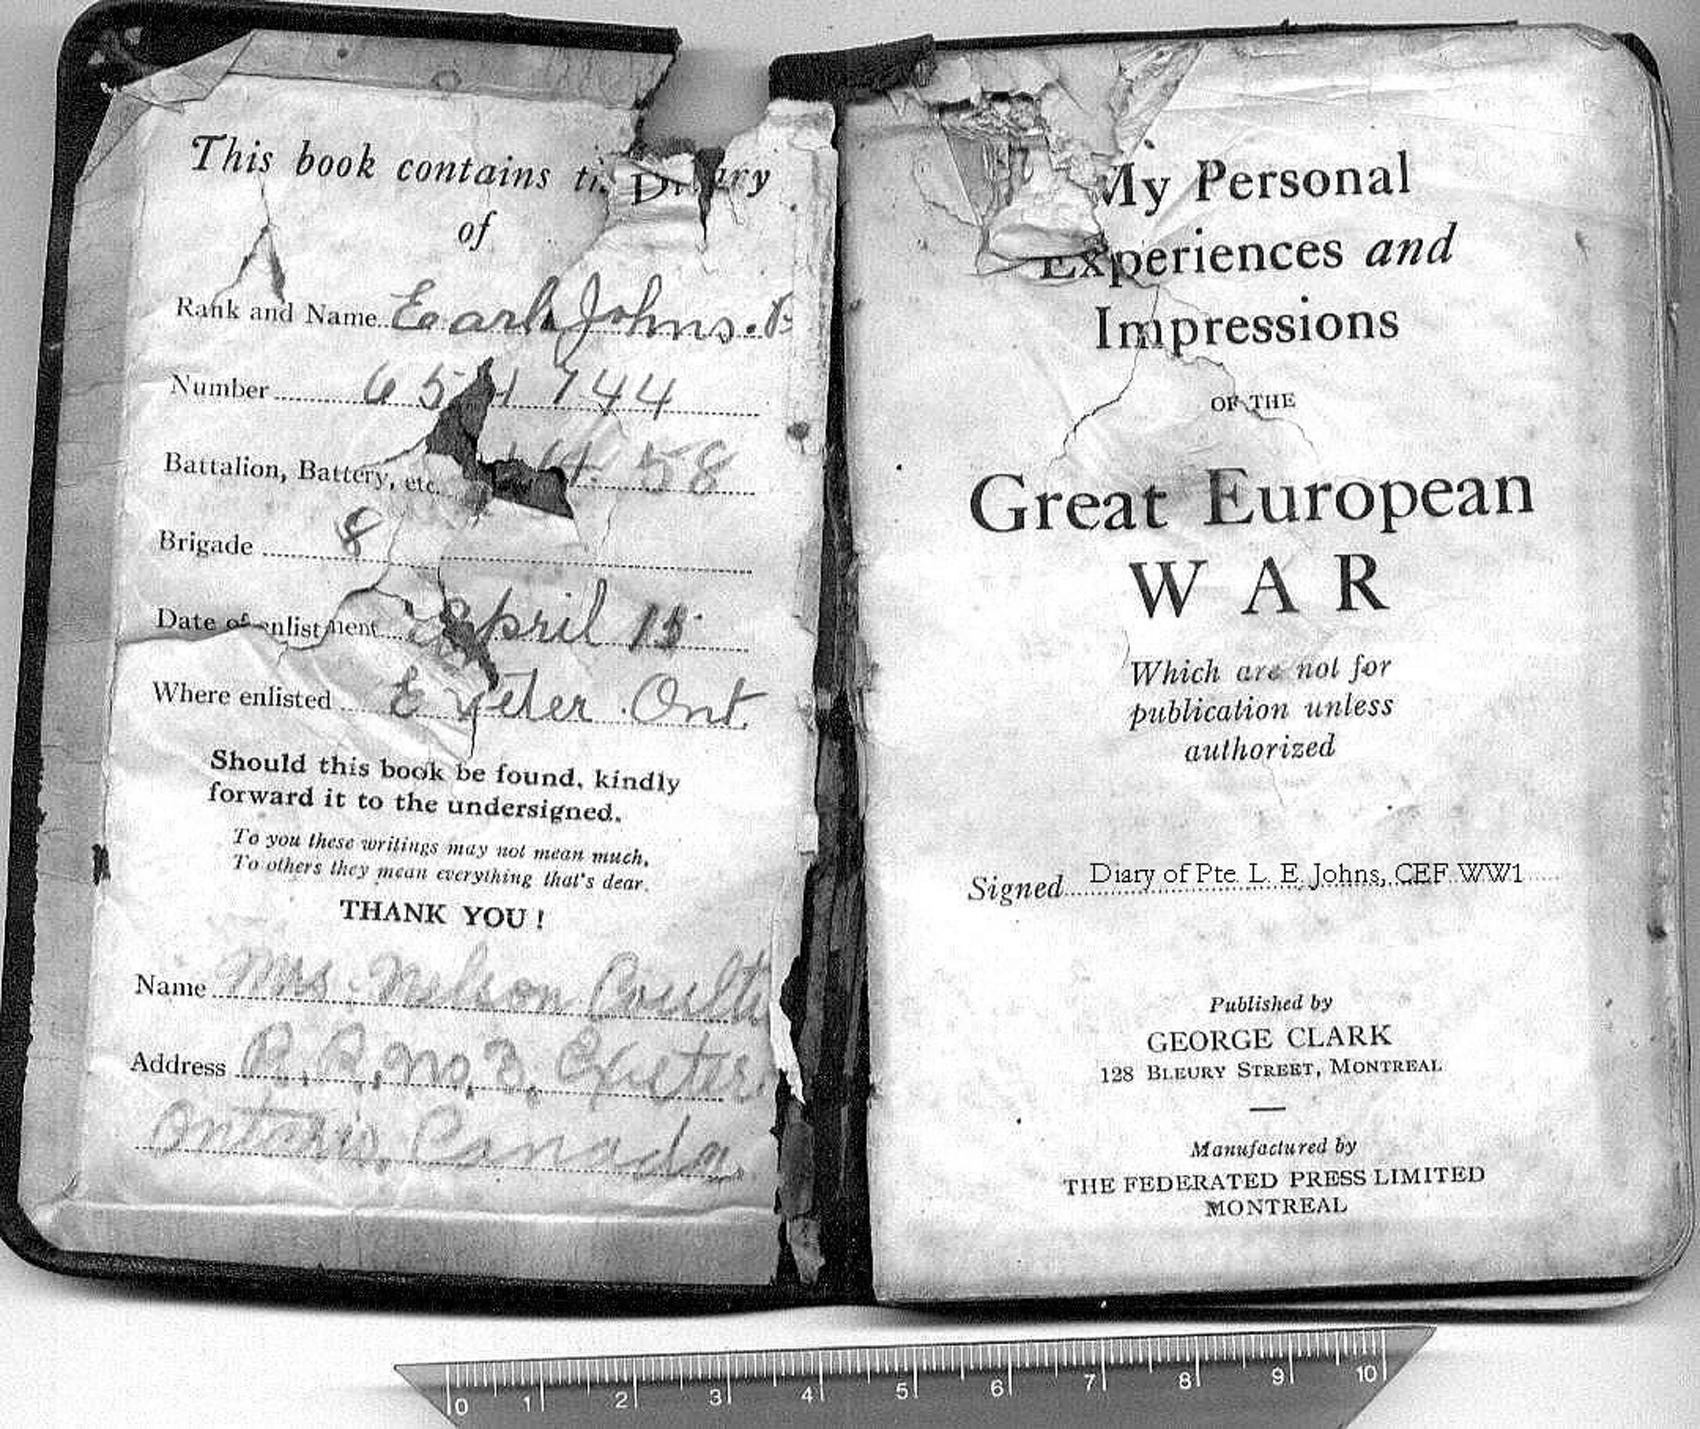 This book contains Diary
of
Rank and Name Earl Johns.
Number 654744
Battalion, Battery, etc. 58
Brigade 8
Date of enlistment April 15
Where enlisted Exeter Ont.
Should this book be found, kindly
forward it to the undersigned.
To you these writings may not mean much,
To others they mean everything that's dear.
THANK YOU!
Name Mrs. Nelson
Address R. R. No. 3, Exeter.
Ontario, Canada.
My Personal
Experiences and
Impressions
OF THE
Great European
WAR
Which are not for
publication unless
authorized
Signed Diary of Pte. L. E. Johns, CEF WW1
Published by
GEORGE CLARK
128 BLEURY STREET, MONTREAL
Manufactured by
THE FEDERATED PRESS LIMITED
MONTREAL
0 1 2 3 4 5 6 7 8 9 10